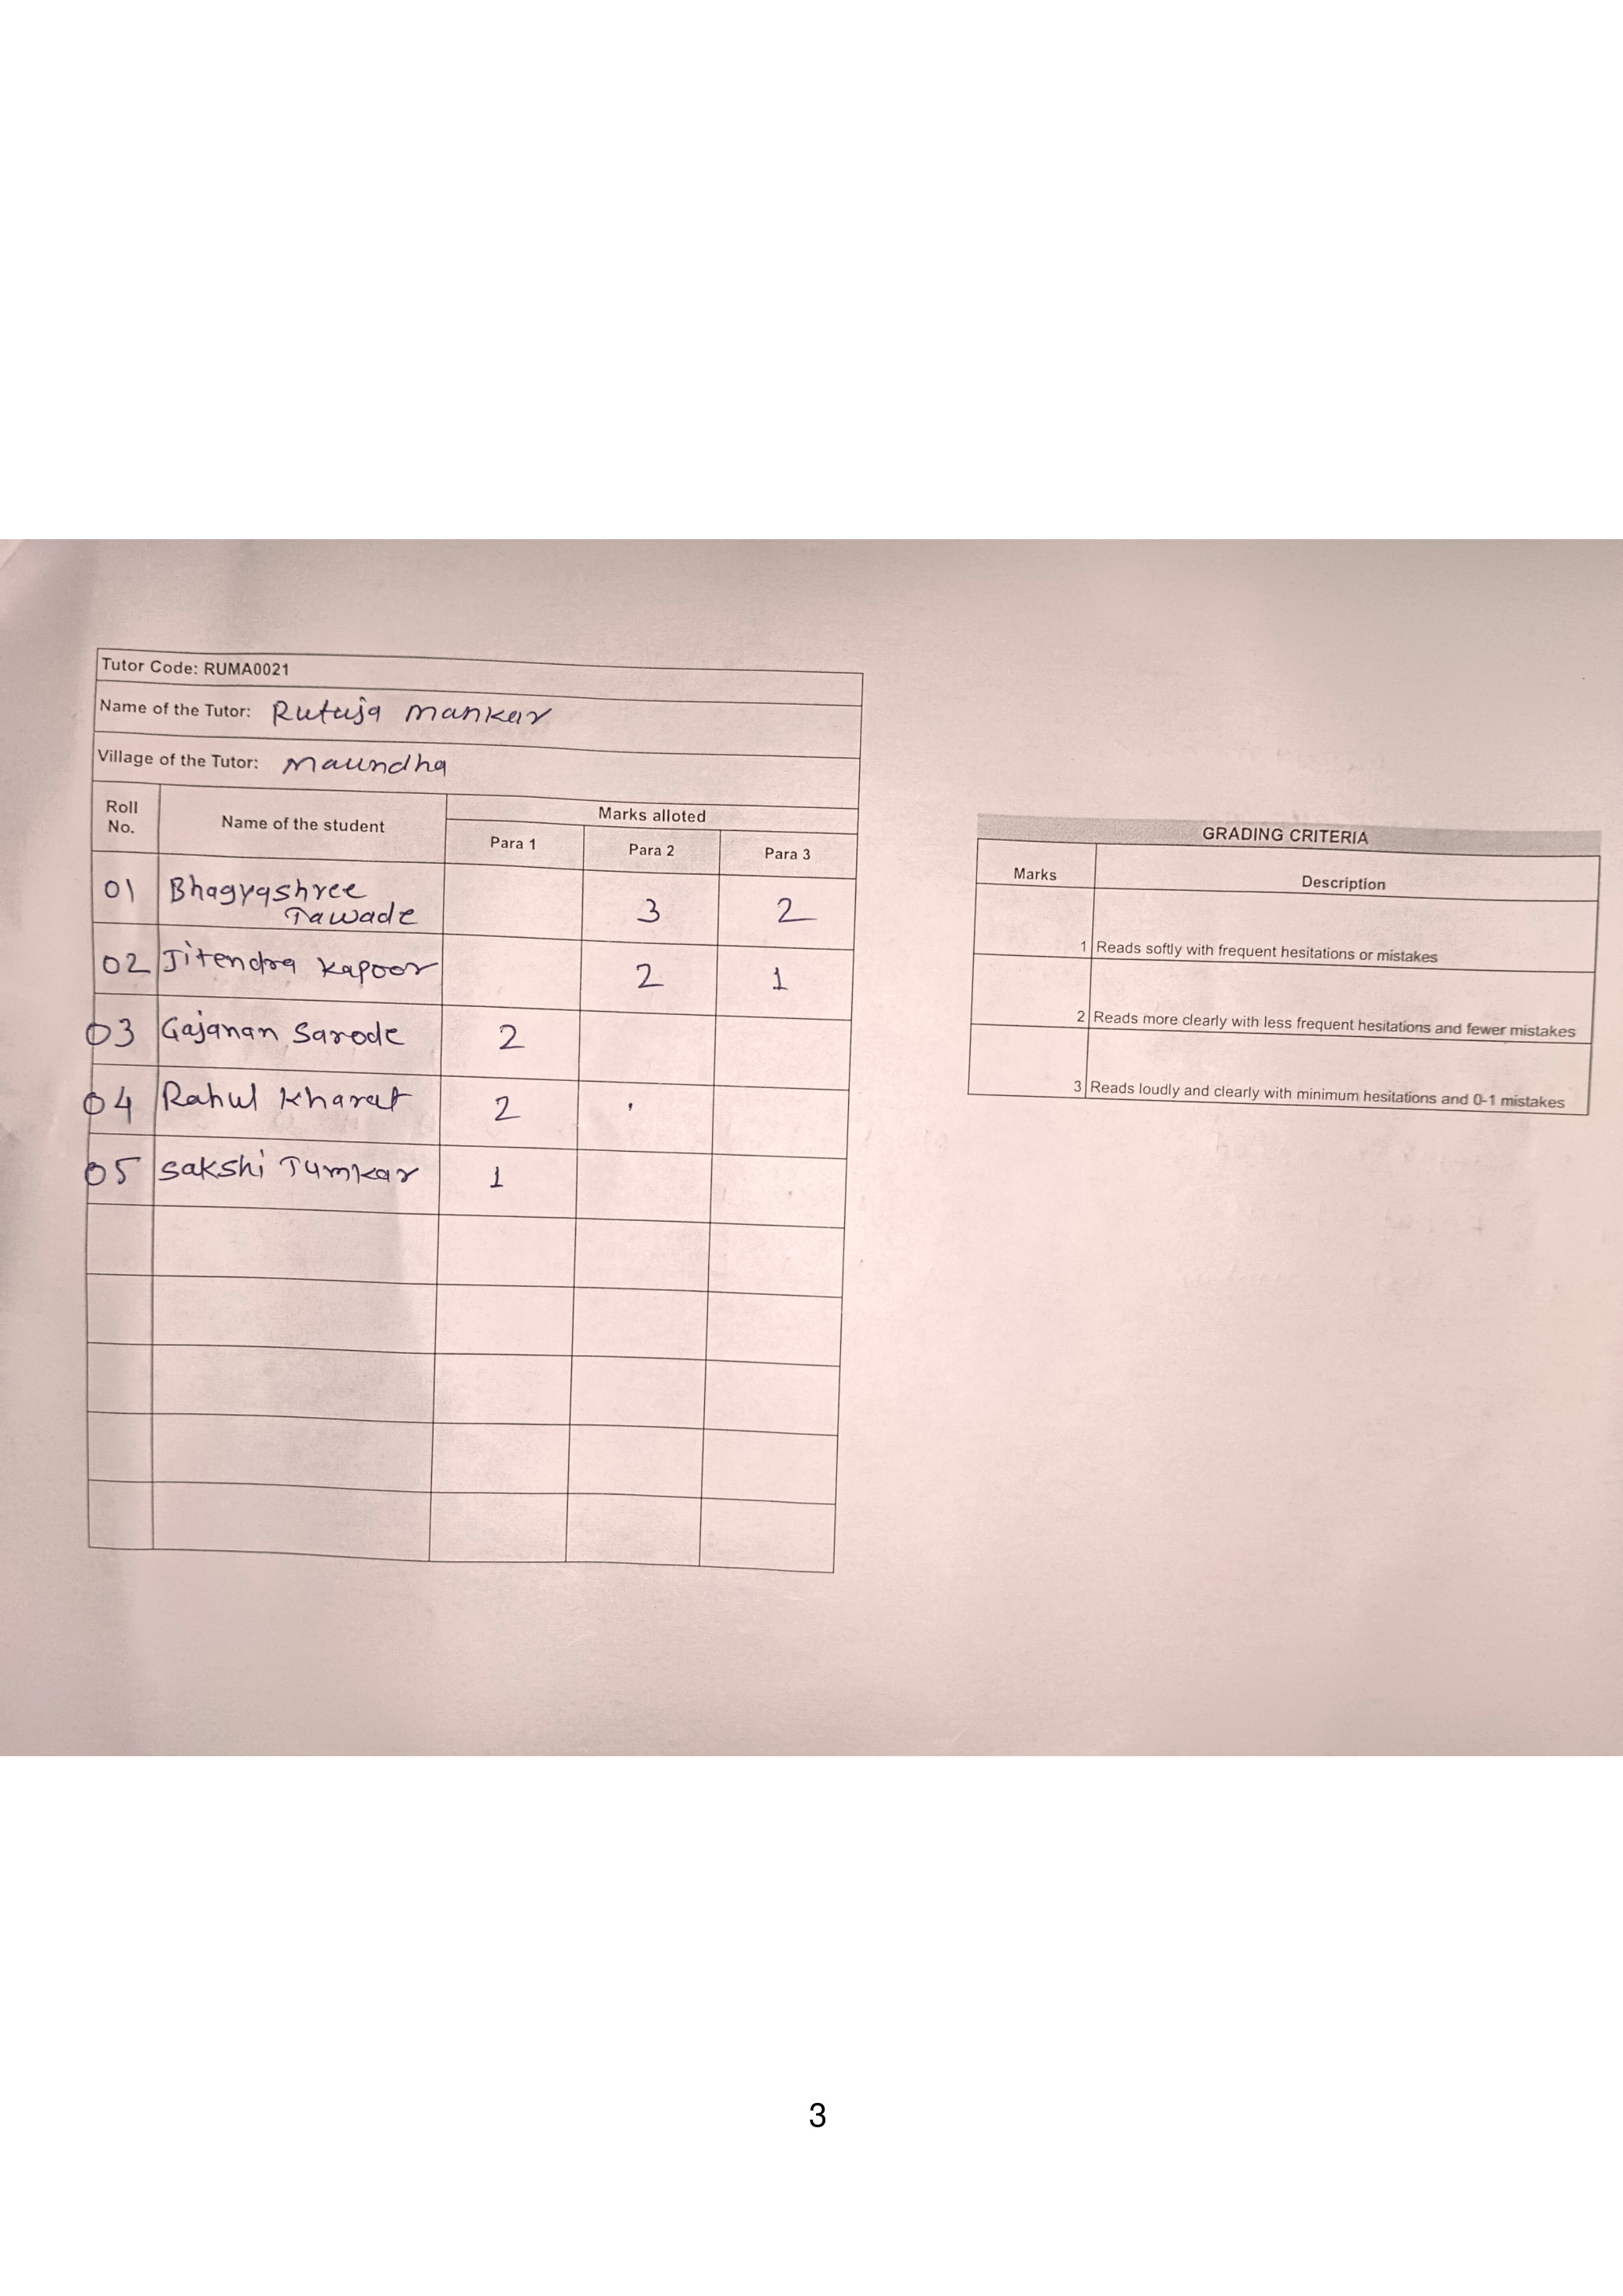 Tutor Code: RUMA0021
Name of the Tutor: Rutuja Mankar
Village of the Tutor: Maundha
Roll No. Name of the student Marks alloted
Para 1 Para 2 Para 3
01 Bhagyashree Tawade 3 2
02 Jitendra Kapoor 2 1
03 Gajanan Sarode 2
04 Rahul Kharat 2
05 Sakshi Tumkar 1
GRADING CRITERIA
Marks Description
1 Reads softly with frequent hesitations or mistakes
2 Reads more clearly with less frequent hesitations and fewer mistakes
3 Reads loudly and clearly with minimum hesitations and 0-1 mistakes
3